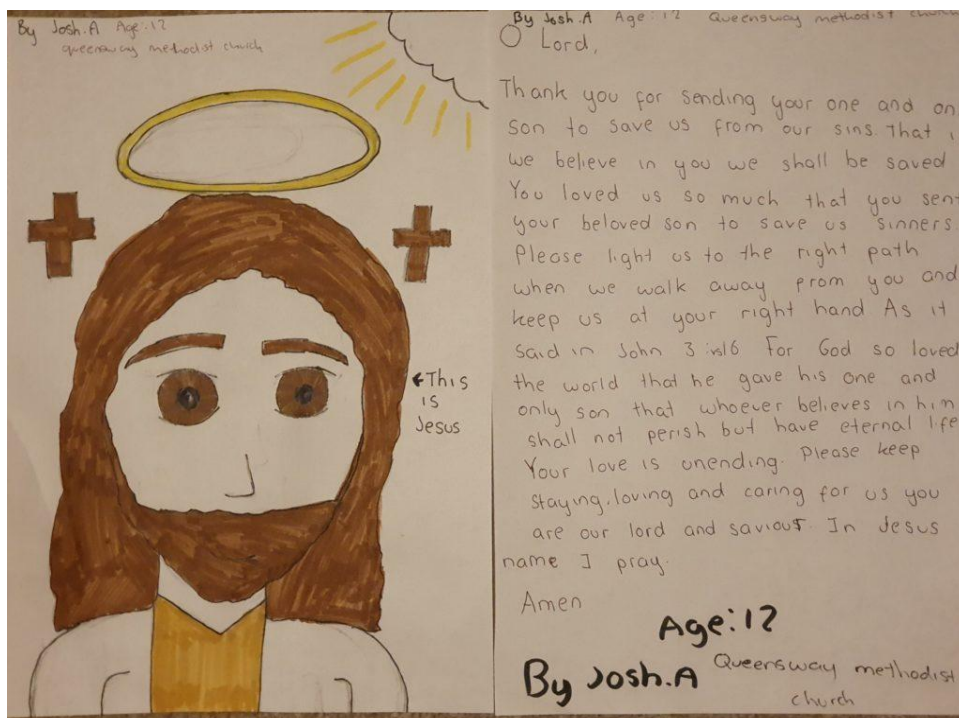 By Josh.A Age:12
queensway methodist church
←This
is
Jesus
By Josh.A Age:12 Queensway methodist
O Lord,
Thank you for sending your one and
son to save us from our sins. that
we believe in you we shall be saved
You loved us so much that you sent
your beloved son to save us sinners.
Please light us to the right path
when we walk away prom you and
keep us at your right hand As it
Said in John 3:vs16 For God so loved
the world that he gave his one and
only son that whoever believes in him
shall not perish but have eternal life
Your love is unending. Please keep
staying, loving and caring for us you
are our lord and saviour. In Jesus
name I pray.
Amen
Age:12
By Josh.A Queensway methodist
church